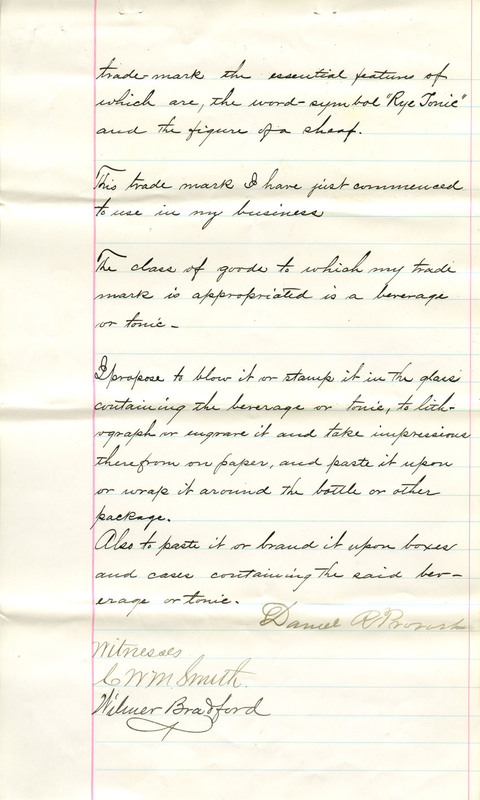 trade-mark the essential features of
which are, the word-symbol "Rye Tonic"
and the figure of a sheaf.
This trade mark I have just commenced
to use in my business
The class of goods to which my trade
mark is appropriated is a beverage
or tonic -
I propose to blow it or stamp it in the glass
containing the beverage or tonic, to lith-
ograph or engrave it and take impressions
therefrom on paper, and paste it upon
or wrap it around the bottle or other
package.
Also to paste it or brand it upon boxes
and cases containing the said bev-
erage or tonic.
Daniel R Provost
Witnesses
C W M Smith.
Wilmer Bradford